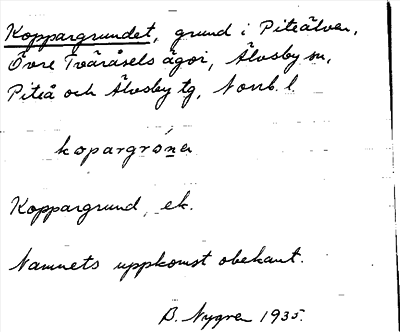 Koppargrundet, grund i Piteälven,
Övre Tväråsels ägor, Älvsby sn,
Piteå och Älvsby tg, Norrb. l.
kopargrònẹ
Koppargrund, ek.
Namnets uppkomst obekant.
B. Nygren 1935.